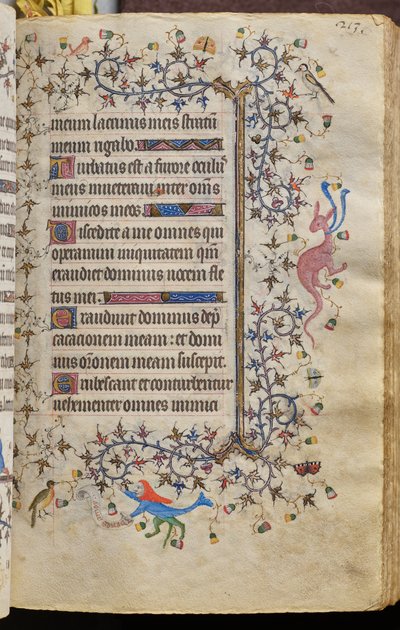 217.
meum lacrimis meis stratū
meum rigabo.
Turbatus est a furore oculꝰ
meus inueteraui inter om̄s
inimicos meos.
Discedite a me omnes qui
operamini iniquitatem qm̄
exaudiuit dominus uocem fle
tus mei.
Exaudiuit dominus dep̄
cacionem meam: et domi
nus or̄onem meam suscepit.
Erubescant et conturbentur
uehementer omnes inimici